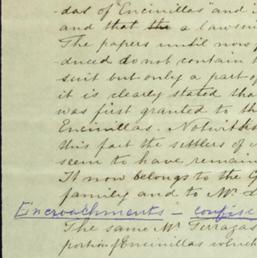 das of "Encinillas" and i
and that the a lawsui
The papers until now p
duced do not contain t
suit but only a part of
it is clearly stated tha
was first granted to th
Encinillas. Notwiths
this fact the settlers of
seem to have remain
It now belongs to the G
family and to Mr.
Encroachments – confise
The same Mr. Terrazas
portion of Encinillas which